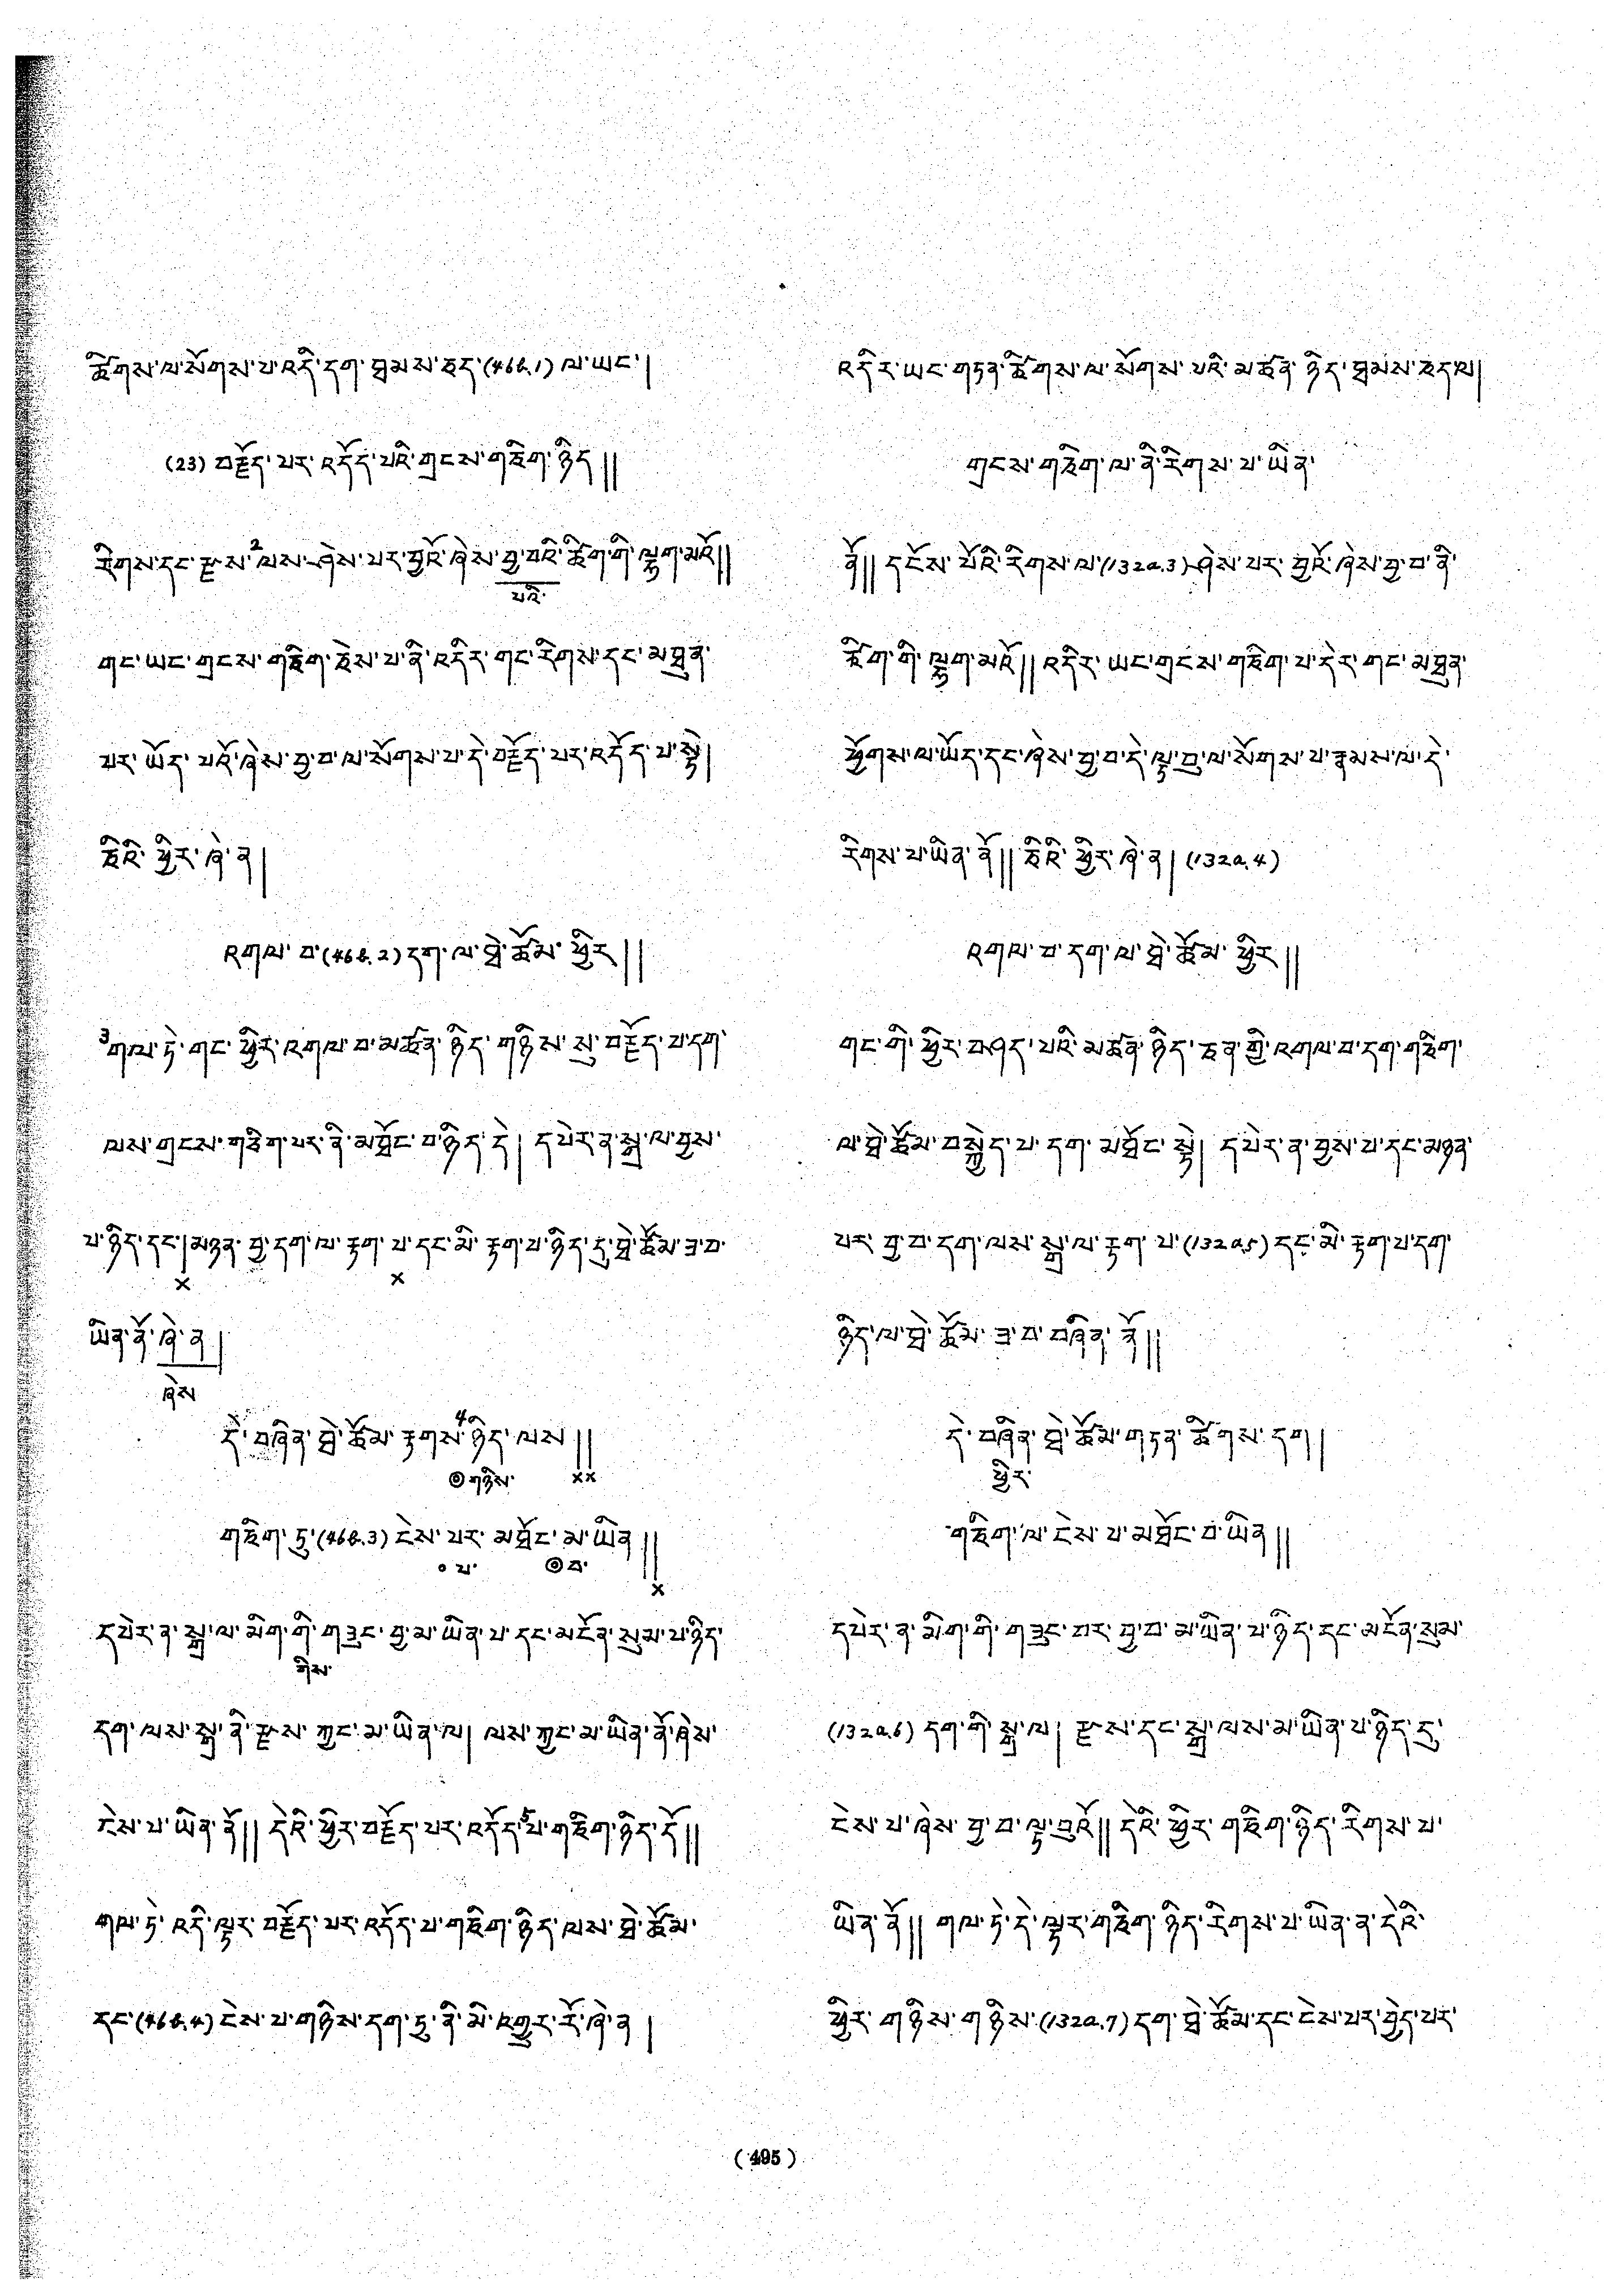 ཚིགས་ལ་སོགས་པ་འདི་དག་ཐམས་ཅད་(46b.1) ལ་ཡང་།
(23) བརྗོད་པར་འདོད་པའི་གྲངས་གཅིག་ཉིད༎
རིགས་དང་རྫས་2ལས་ཤེས་པར་བྱའོ་ཞེས་བྱ་བའི་ཚིག་གི་ལྷག་མའོ༎
པའི་
གང་ཡང་གྲངས་གཅིག་ཅེས་པ་ནི་འདིར་གང་རིགས་དང་མཐུན་
པར་ཡོད་པའོ་ཞེས་བྱ་བ་ལ་སོགས་པ་དེ་བརྗོད་པར་འདོད་པ་སྟེ།
ཅིའི་ཕྱིར་ཞེ་ན།
འགལ་བ་(46b.2) དག་ལ་ཐེ་ཚོམ་ཕྱིར༎
3གལ་ཏེ་གང་ཕྱིར་འགལ་བ་མཚན་ཉིད་གཉིས་སུ་བརྗོད་པ་དག་
ལས་གྲངས་གཅིག་པར་ནི་མཐོང་བ་ཉིད་དེ། དཔེར་ན་སྒྲ་ལ་བྱས་
པ་ཉིད་དང་།མཉན་བྱ་དག་ལ་རྟག་པ་དང་མི་རྟག་པ་ཉིད་དུ་ཐེ་ཚོམ་ཟ་བ་
× ×
ཡིན་ནོ་ཞེ་ན།
ཞེས
དེ་བཞིན་ཐེ་ཚོམ་རྟགས་4ཉིད་ལས༎
◎གཉིས་ ××
གཅིག་ཏུ་(46b.3) ངེས་པར་མཐོང་མ་ཡིན༎
∘པ་ ◎བ་
×
དཔེར་ན་སྒྲ་ལ་མིག་གི་གཟུང་བྱ་མ་ཡིན་པ་དང་མངོན་སུམ་པ་ཉིད་
གིས་
དག་ལས་སྒྲ་ནི་རྫས་ཀྱང་མ་ཡིན་ལ། ལས་ཀྱང་མ་ཡིན་ནོ་ཞེས་
ངེས་པ་ཡིན་ནོ༎ དེའི་ཕྱིར་བརྗོད་པར་འདོད་5པ་གཅིག་ཉིད་དོ༎
གལ་ཏེ་འདི་ལྟར་བརྗོད་པར་འདོད་པ་གཅིག་ཉིད་ལས་ཐེ་ཚོམ་
དང་(46b.4) ངེས་པ་གཉིས་དག་ཏུ་ནི་མི་འགྱུར་རོ་ཞེ་ན།
འདིར་ཡང་གཏན་ཚིགས་ལ་སོགས་པའི་མཚན་ཉིད་ཐམས་ཅད་ལ།
གྲངས་གཅིག་ལ་ནི་རིགས་པ་ཡིན་
ནོ༎ དངོས་པོའི་རིགས་ལ་(132a.3) ཤེས་པར་བྱའོ་ཞེས་བྱ་བ་ནི་
ཚིག་གི་ལྷག་མའོ༎ འདིར་ཡང་གྲངས་གཅིག་པ་དེར་གང་མཐུན་
ཕྱོགས་ལ་ཡོད་དང་ཞེས་བྱ་བ་དེ་ལྟ་བུ་ལ་སོགས་པ་རྣམས་ལ་དེ་
རིགས་པ་ཡིན་ནོ༎ ཅིའི་ཕྱིར་ཞེ་ན། (132a.4)
འགལ་བ་དག་ལ་ཐེ་ཚོམ་ཕྱིར༎
གང་གི་ཕྱིར་བཤད་པའི་མཚན་ཉིད་ཅན་གྱི་འགལ་བ་དག་གཅིག་
ལ་ཐེ་ཚོམ་བསྐྱེད་པ་དག་མཐོང་སྟེ། དཔེར་ན་བྱས་པ་དང་མཉན་
པར་བྱ་བ་དག་ལས་སྒྲ་ལ་རྟག་པ་(132a.5) དང་མི་རྟག་པ་དག་
ཉིད་ལ་ཐེ་ཚོམ་ཟ་བ་བཞིན་ནོ༎
དེ་བཞིན་ཐེ་ཚོམ་གཏན་ཚིགས་དག།
ཕྱིར་
གཅིག་ལ་ངེས་པ་མཐོང་བ་ཡིན༎
དཔེར་ན་མིག་གི་གཟུང་བར་བྱ་བ་མ་ཡིན་པ་ཉིད་དང་མངོན་སུམ་
(132a.6) དག་གི་སྒྲ་ལ། རྫས་དང་སྒྲ་ལས་མ་ཡིན་པ་ཉིད་དུ་
ངེས་པ་ཞེས་བྱ་བ་ལྟ་བུའོ༎ དེའི་ཕྱིར་གཅིག་ཉིད་རིགས་པ་
ཡིན་ནོ༎ གལ་ཏེ་དེ་ལྟར་གཅིག་ཉིད་རིགས་པ་ཡིན་ན་དེའི་
ཕྱིར་གཉིས་གཉིས་(132a.7) དག་ཐེ་ཚོམ་དང་ངེས་པར་བྱེད་པར་
(495)